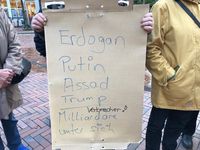 Erdogan
Putin
Assad
Trump
Verbrecher
Milliardäre
unter sich